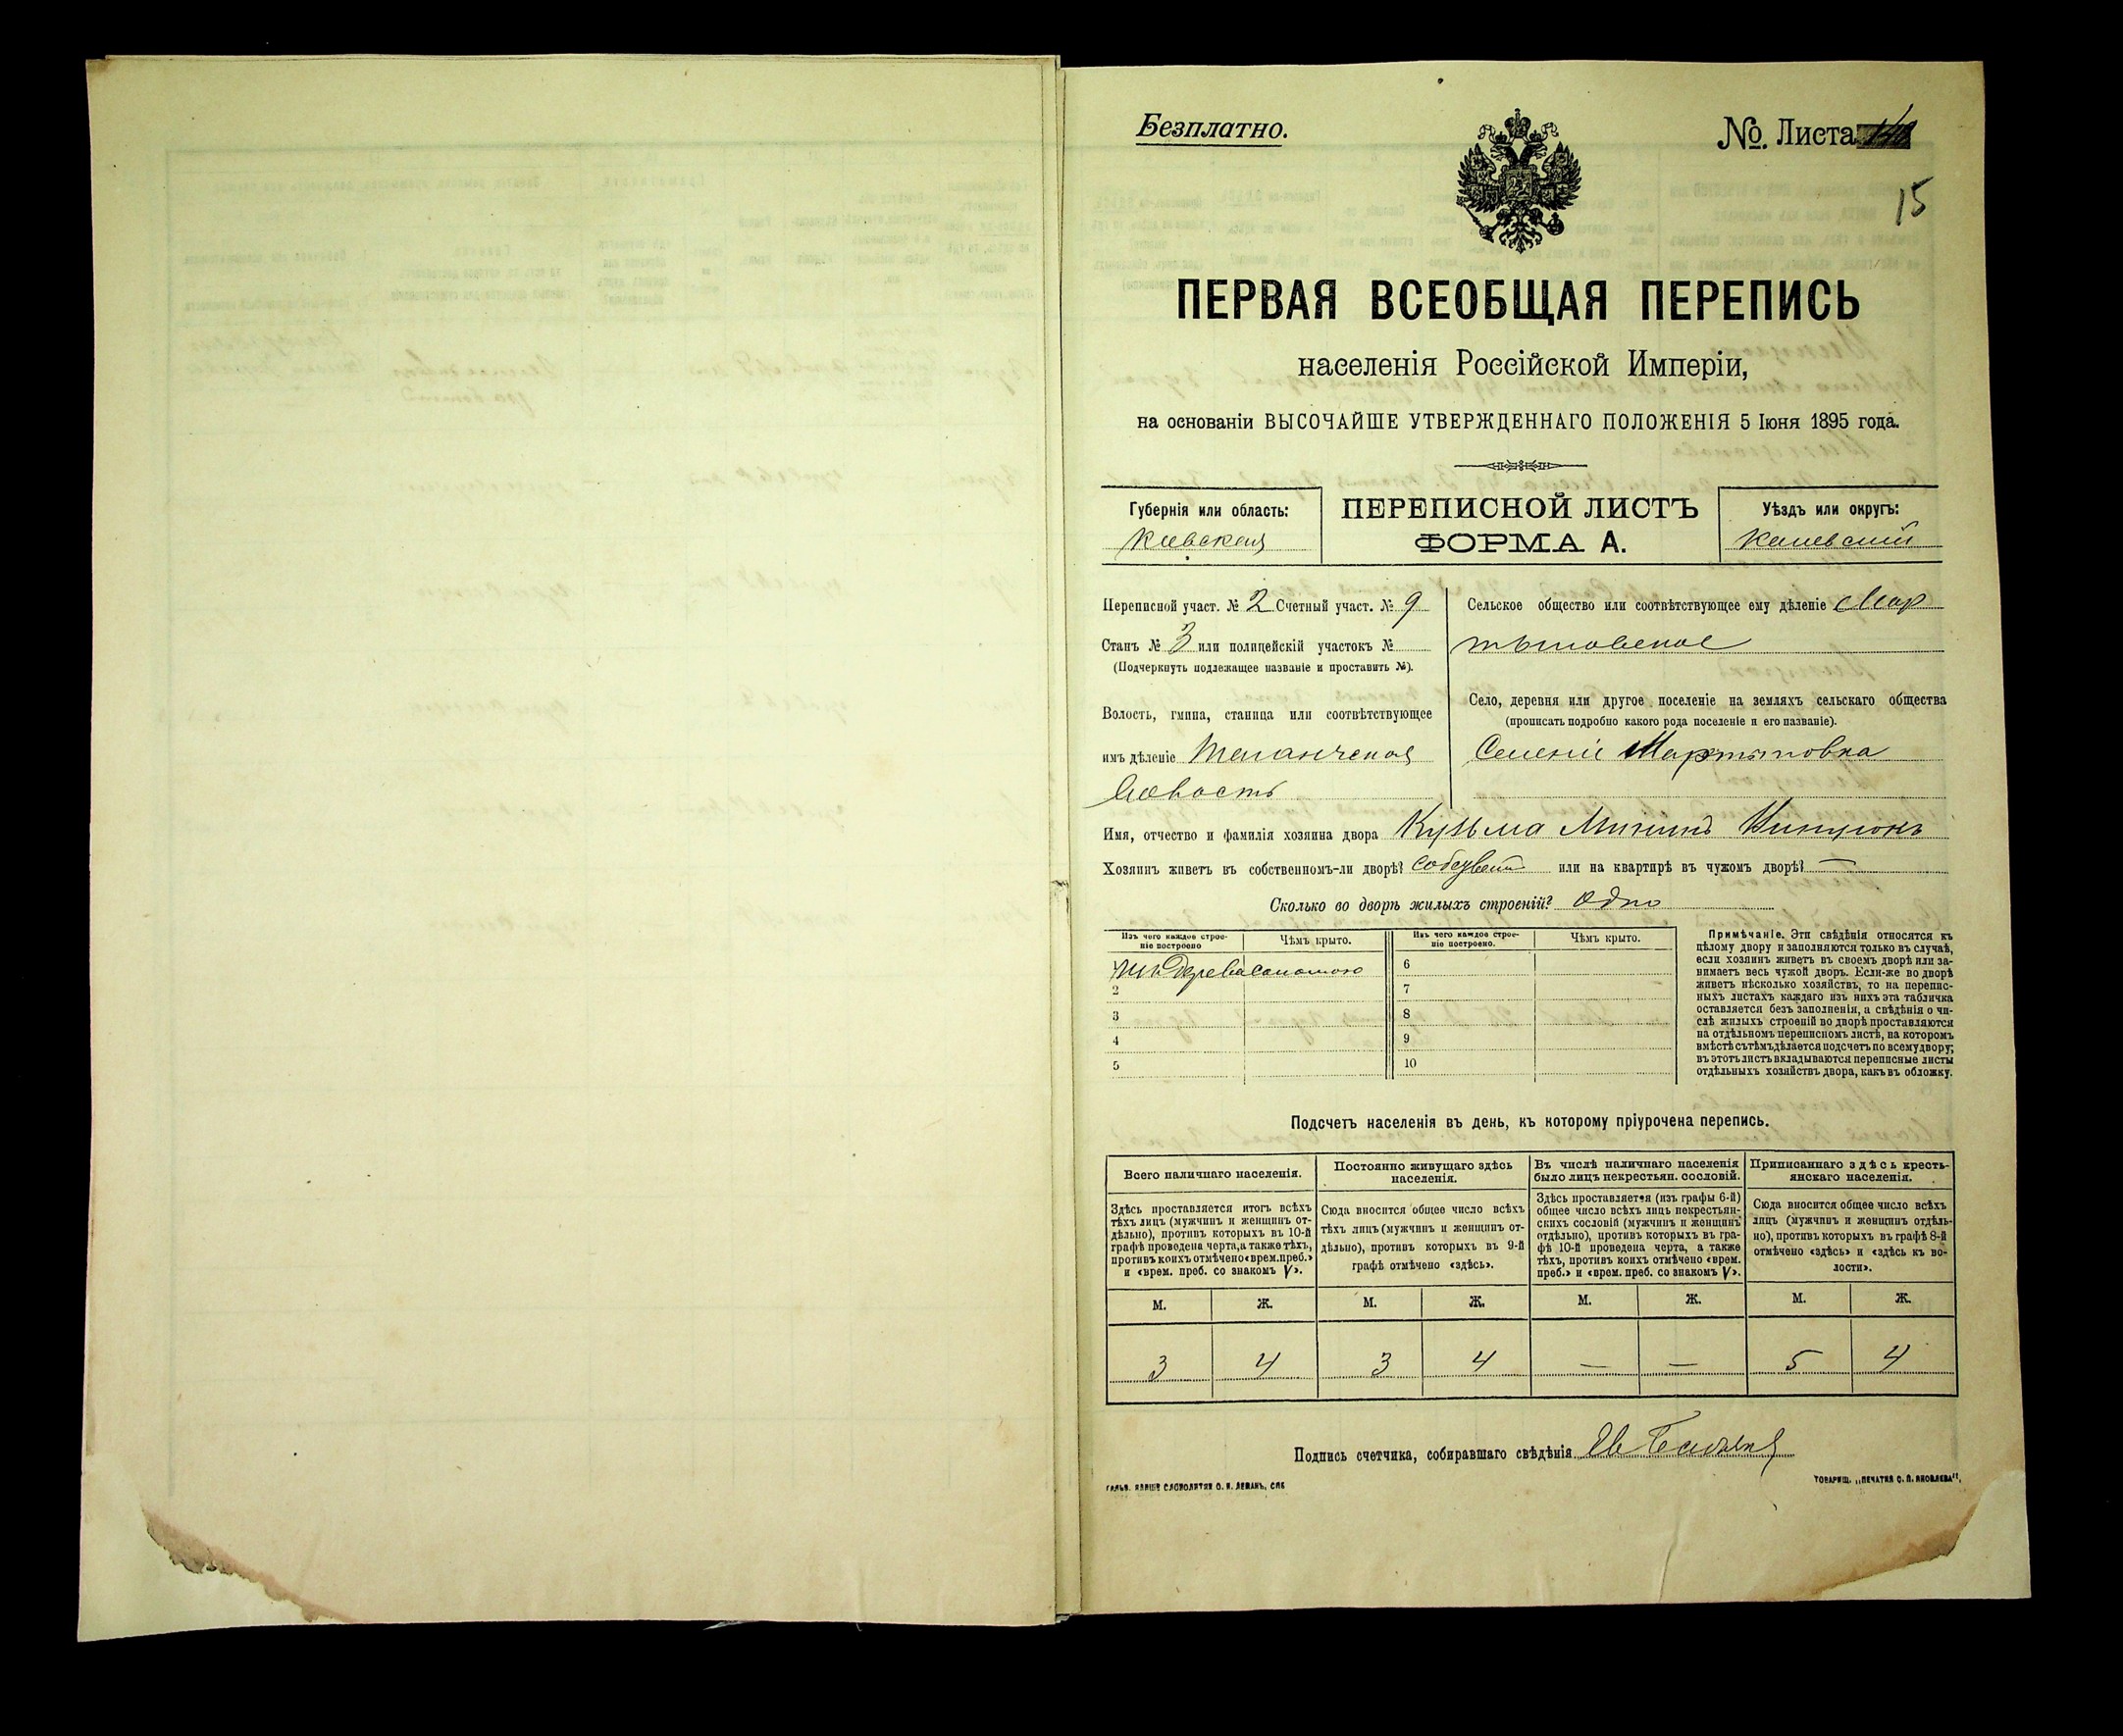 Безплатно.
№. Листа
15
ПЕРВАЯ ВСЕОБЩАЯ ПЕРЕПИСЬ
населенія Россійской Имперіи,
на основаніи ВЫСОЧАЙШЕ УТВЕРЖДЕННАГО ПОЛОЖЕНІЯ 5 Іюня 1895 года.
Губернія или область:
Киевская
ПЕРЕПИСНОЙ ЛИСТЪ
ФОРМА А.
Уѣздъ или округъ:
Каневский
Переписной участ. № 2 Счетный участ. № 9
Станъ № 3 или полицейскій участокъ №
(Подчеркнуть подлежащее названіе и проставить №).
Волость, гмина, станица или соотвѣтствующее
имъ дѣленіе
волость
Сельское общество или соотвѣтствующее ему дѣленіе Мар
тыновское
Село, деревня или другое поселеніе на земляхъ сельскаго общества
(прописать подробно какого рода поселеніе и его названіе).
Селеніе Мартыновка
Имя, отчество и фамилія хозяина двора Кузьма Мининъ
Хозяинъ живетъ въ собственномъ-ли дворѣ? или на квартирѣ въ чужомъ дворѣ? —
Сколько во дворѣ жилыхъ строеній? Одно
Изъ чего каждое строе-
ніе построено
Чѣмъ крыто.
Изъ чего каждое строе-
ніе построено.
Чѣмъ крыто.
Дерева соломою
2
3
4
5
6
7
8
9
10
Примѣчаніе. Эти свѣдѣнія относятся къ
цѣлому двору и заполняются только въ случаѣ,
если хозяинъ живетъ въ своемъ дворѣ или за-
нимаетъ весь чужой дворъ. Если-же во дворѣ
живетъ нѣсколько хозяйствъ, то на перепис-
ныхъ листахъ каждаго изъ нихъ эта табличка
оставляется безъ заполненія, а свѣдѣнія о чи-
слѣ жилыхъ строеній во дворѣ проставляются
на отдѣльномъ переписномъ листѣ, на которомъ
вмѣстѣ сътѣмъ дѣлается подсчетъ по всему двору;
въ этотъ листъ вкладываются переписные листы
отдѣльныхъ хозяйствъ двора, какъ въ обложку.
Подсчетъ населенія въ день, къ которому пріурочена перепись.
Всего наличнаго населенія.
Здѣсь проставляется итогъ всѣхъ
тѣхъ лицъ (мужчинъ и женщинъ от-
дѣльно), противъ которыхъ въ 10-й
графѣ проведена черта, а также тѣхъ,
противъ коихъ отмѣчено «врем. преб.»
и «врем. преб. со знакомъ V».
Постоянно живущаго здѣсь
населенія.
Сюда вносится общее число всѣхъ
тѣхъ лицъ (мужчинъ и женщинъ от-
дѣльно), противъ которыхъ въ 9-й
графѣ отмѣчено «здѣсь».
Въ числѣ наличнаго населенія
было лицъ некрестьян. сословій.
Здѣсь проставляется (изъ графы 6-й)
общее число всѣхъ лицъ некрестьян-
скихъ сословій (мужчинъ и женщинъ
отдѣльно), противъ которыхъ въ гра-
фѣ 10-й проведена черта, а также
тѣхъ, противъ коихъ отмѣчено «врем.
преб.» и «врем. преб. со знакомъ V».
Приписаннаго здѣсь кресть-
янскаго населенія.
Сюда вносится общее число всѣхъ
лицъ (мужчинъ и женщинъ отдѣль-
но), противъ которыхъ въ графѣ 8-й
отмѣчено «здѣсь» и «здѣсь къ во-
лости».
М. Ж. М. Ж. М. Ж. М. Ж.
3 4 3 4 — — 5 4
Подпись счетчика, собиравшаго свѣдѣнія
ТОВАРИЩ. „ПЕЧАТНЯ С. П. ЯКОВЛЕВА“,